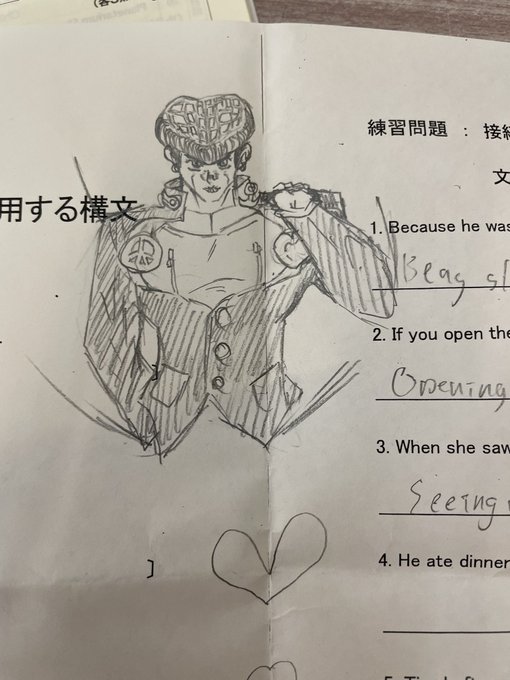 用する構文
練習問題 : 接
文
1. Because he was
2. If you open the
Opening
3. When she saw
Seeing
]
4. He ate dinner